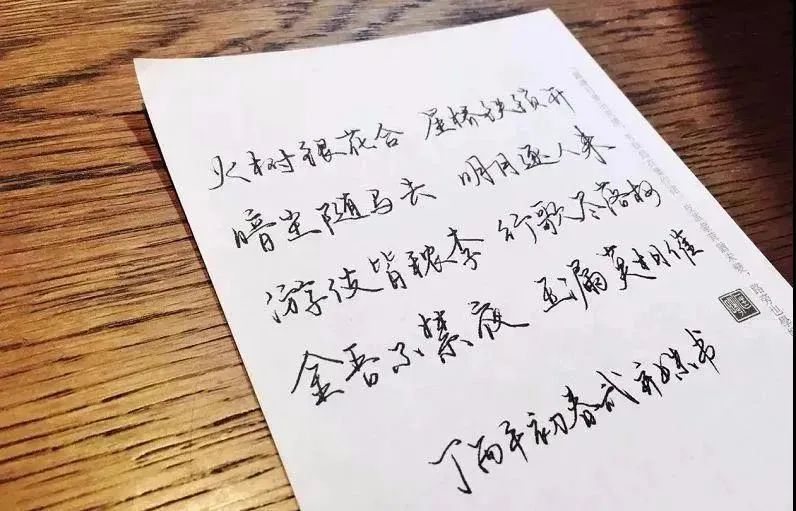 火树银花合 星桥铁锁开
暗尘随马去 明月逐人来
游伎皆秾李 行歌尽落梅
金吾不禁夜 玉漏莫相催
丁酉年初春武